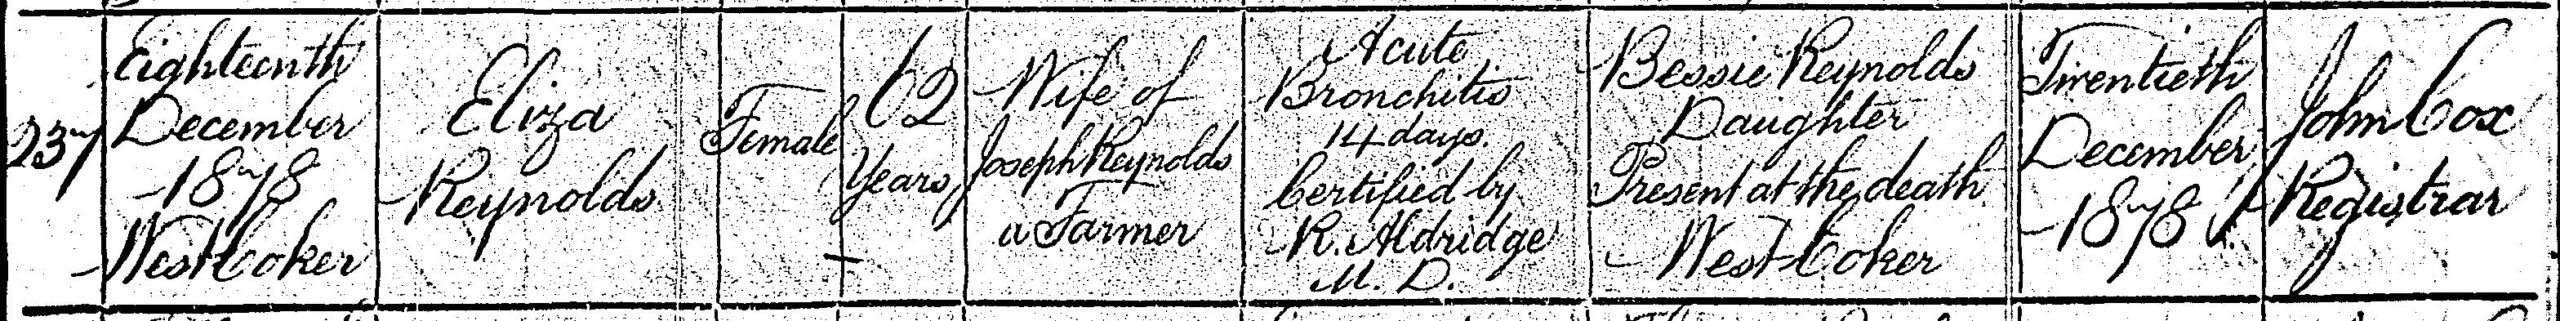 237
Eighteenth
December
1878
West Coker
Eliza
Reynolds
Female
62
Years
Wife of
Joseph Reynolds
a Farmer
Acute
Bronchitis
14 days.
Certified by
R. Aldridge
M. D.
Bessie Reynolds
Daughter
Present at the death
West Coker
Twentieth
December
1878
John Cox
Registrar